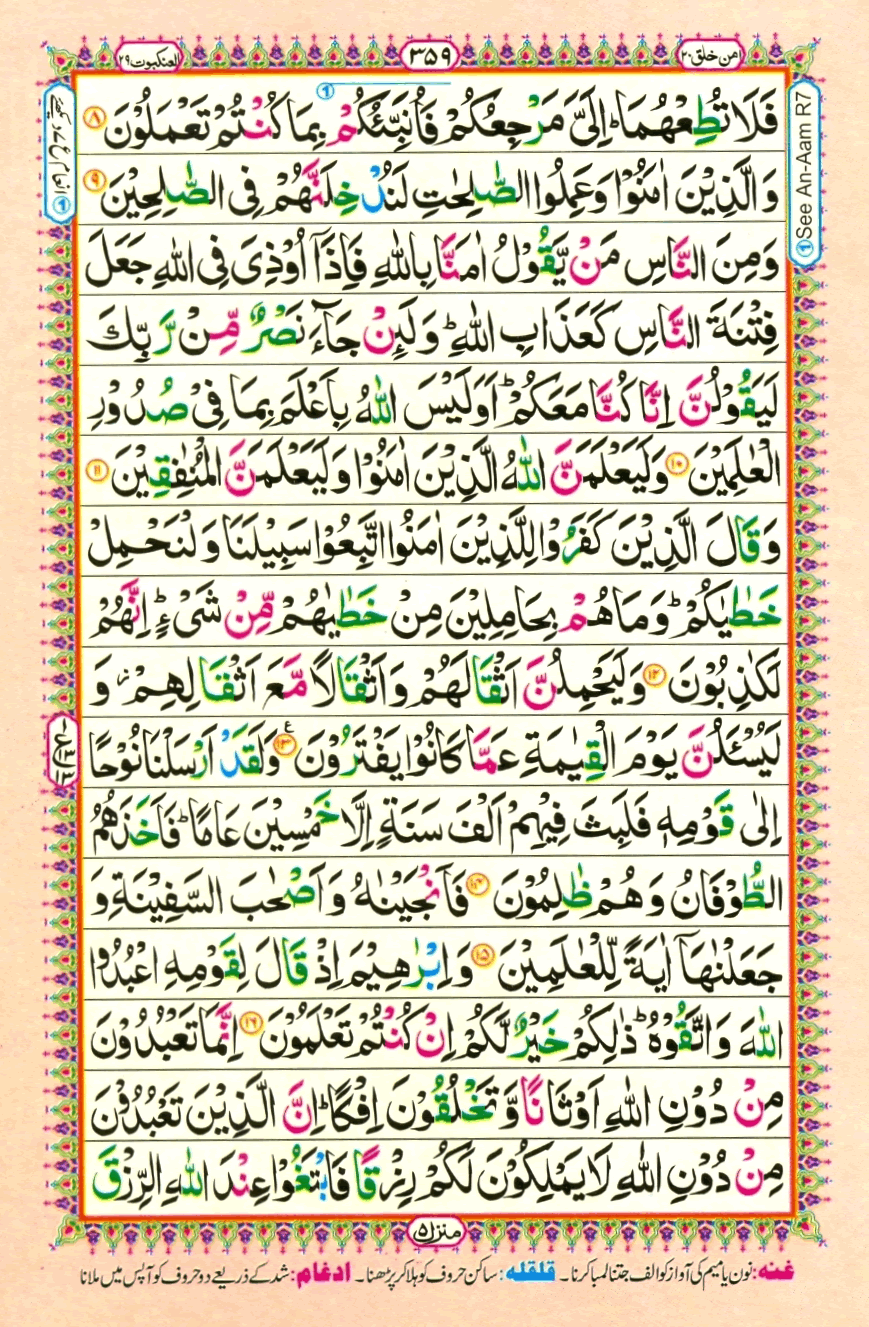 امن خلق ۲۰
۳۵۹
العنكبوت ۲۹
① See An-Aam R7
① انعام رکوع ۷ دیکھئے
فَلَا تُطِعْهُمَا ؕ اِلَیَّ مَرْجِعُكُمْ فَاُنَبِّئُكُمْ بِمَا كُنْتُمْ تَعْمَلُوْنَ ۸
وَالَّذِیْنَ اٰمَنُوْا وَعَمِلُوا الصّٰلِحٰتِ لَنُدْخِلَنَّهُمْ فِی الصّٰلِحِیْنَ ۹
وَمِنَ النَّاسِ مَنْ یَّقُوْلُ اٰمَنَّا بِاللّٰهِ فَاِذَاۤ اُوْذِیَ فِی اللّٰهِ جَعَلَ
فِتْنَةَ النَّاسِ كَعَذَابِ اللّٰهِ ؕ وَلَىِٕنْ جَآءَ نَصْرٌ مِّنْ رَّبِّكَ
لَیَقُوْلُنَّ اِنَّا كُنَّا مَعَكُمْ ؕ اَوَلَیْسَ اللّٰهُ بِاَعْلَمَ بِمَا فِیْ صُدُوْرِ
الْعٰلَمِیْنَ ۱۰ وَلَیَعْلَمَنَّ اللّٰهُ الَّذِیْنَ اٰمَنُوْا وَلَیَعْلَمَنَّ الْمُنٰفِقِیْنَ ۱۱
وَقَالَ الَّذِیْنَ كَفَرُوْا لِلَّذِیْنَ اٰمَنُوا اتَّبِعُوْا سَبِیْلَنَا وَلْنَحْمِلْ
خَطٰیٰكُمْ ؕ وَمَا هُمْ بِحَامِلِیْنَ مِنْ خَطٰیٰهُمْ مِّنْ شَیْءٍ ؕ اِنَّهُمْ
لَكٰذِبُوْنَ ۱۲ وَلَیَحْمِلُنَّ اَثْقَالَهُمْ وَاَثْقَالًا مَّعَ اَثْقَالِهِمْ ؗ وَ
لَیُسْـَٔلُنَّ یَوْمَ الْقِیٰمَةِ عَمَّا كَانُوْا یَفْتَرُوْنَ ۱۳ ع وَلَقَدْ اَرْسَلْنَا نُوْحًا
اِلٰی قَوْمِهٖ فَلَبِثَ فِیْهِمْ اَلْفَ سَنَةٍ اِلَّا خَمْسِیْنَ عَامًا ؕ فَاَخَذَهُمُ
الطُّوْفَانُ وَهُمْ ظٰلِمُوْنَ ۱۴ فَاَنْجَیْنٰهُ وَاَصْحٰبَ السَّفِیْنَةِ وَ
جَعَلْنٰهَاۤ اٰیَةً لِّلْعٰلَمِیْنَ ۱۵ وَاِبْرٰهِیْمَ اِذْ قَالَ لِقَوْمِهِ اعْبُدُوا
اللّٰهَ وَاتَّقُوْهُ ؕ ذٰلِكُمْ خَیْرٌ لَّكُمْ اِنْ كُنْتُمْ تَعْلَمُوْنَ ۱۶ اِنَّمَا تَعْبُدُوْنَ
مِنْ دُوْنِ اللّٰهِ اَوْثَانًا وَّتَخْلُقُوْنَ اِفْكًا ؕ اِنَّ الَّذِیْنَ تَعْبُدُوْنَ
مِنْ دُوْنِ اللّٰهِ لَا یَمْلِكُوْنَ لَكُمْ رِزْقًا فَابْتَغُوْا عِنْدَ اللّٰهِ الرِّزْقَ
منزل ۵
غنه: نون یا میم کی آواز کو الف جتنا لمبا کرنا۔ قلقله: ساکن حروف کو ہلا کر پڑھنا۔ ادغام: شد کے ذریعے دو حروف کو آپس میں ملانا